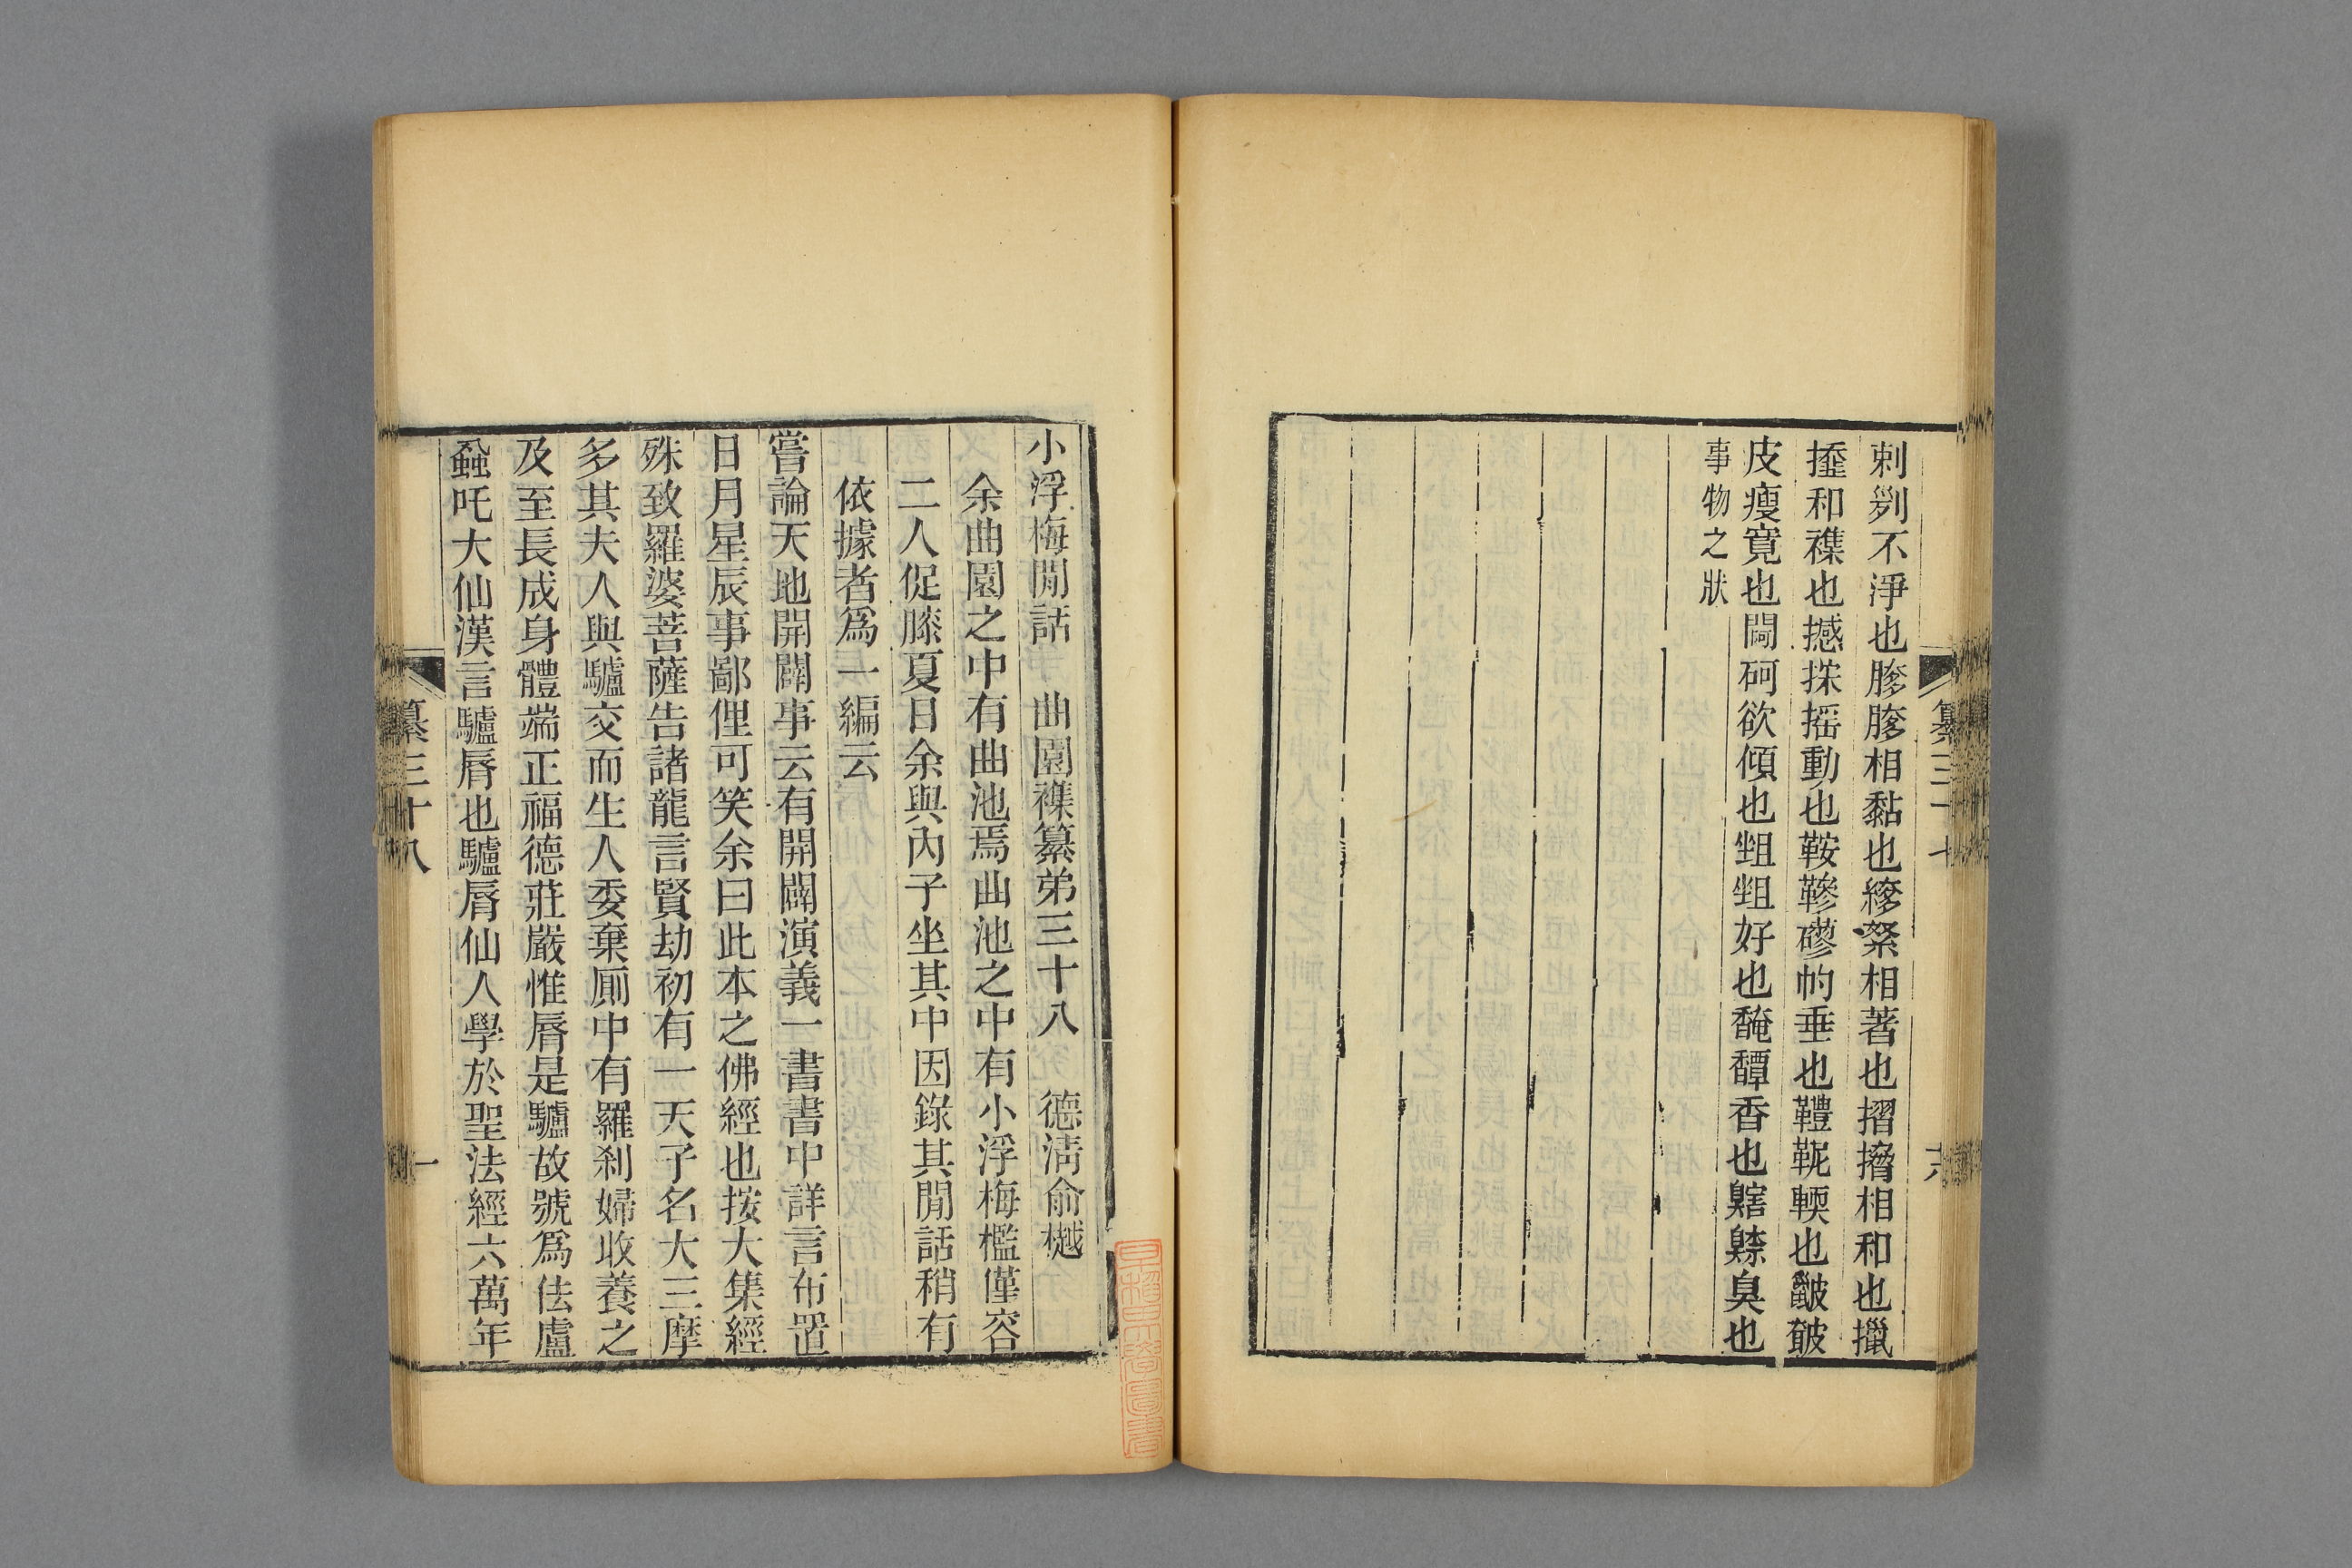 剌㓨不淨也䏧䏧相黏也縿綮相著也摺㩉相和也擸
㨻和襍也撼㨆摇動也鞍鞖磟㡇垂也䡀䩉輭也皺皵
皮瘦寬也閜砢欲傾也㘴䖕好也馣馟香也䶎臭也
事物之狀
纂三十七
十六
小浮梅閒話 曲園襍纂弟三十八 德清俞樾
余曲園之中有曲池焉曲池之中有小浮梅檻僅容
二人促膝夏日余與內子坐其中因錄其閒話稍有
依據者爲一編云
嘗論天地開闢事云有開闢演義一書書中詳言布置
日月星辰事鄙俚可笑余曰此本之佛經也按大集經
殊致羅婆菩薩告諸龍言賢劫初有一天子名大三摩
多其夫人與驢交而生人委棄厠中有羅刹婦收養之
及至長成身體端正福德莊嚴惟脣是驢故號爲佉盧
蝨吒大仙漢言驢脣也驢脣仙人學於聖法經六萬年
纂三十八
一